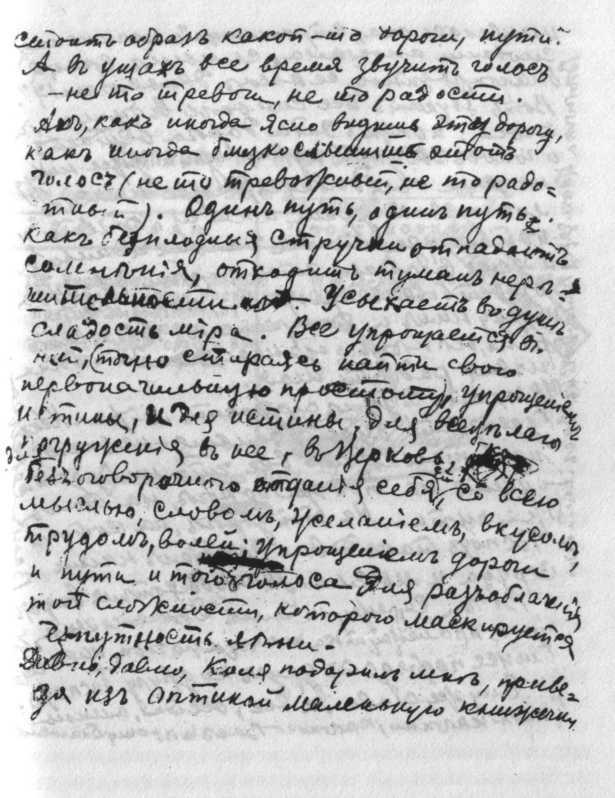 стоитъ образъ какой-то дороги, пути.
А въ ушахъ все время звучитъ голосъ
– не то тревоги, не то радости.
Ахъ, какъ иногда ясно видишь эту дорогу,
какъ иногда близко слышишь этотъ
голосъ (не то тревожный, не то радо-
стный). Одинъ путь, одинъ путь.
Какъ безплодныя стручки отпадаютъ
сомнѣнія, отходитъ туманъ нерѣ-
шительности. Усыхаетъ въ душѣ
сладость міра. Все упрощается въ
ней, (точно стараясь найти свою
первоначальную простоту) упрощеніемъ
истины, и для истины, для всецѣлаго
погруженія въ нее, въ Церковь,
для безъоговорочного отданія себя, со всею
мыслью, словомъ, желаніемъ, вкусомъ,
трудомъ, волей; упрощеніемъ дороги
и пути и того голоса для разъоблаченія
той сложности, которою маскируется
лжи.
Давно, давно, Коля подарилъ мнѣ, приве-
зя изъ Оптиной маленькую книжечку